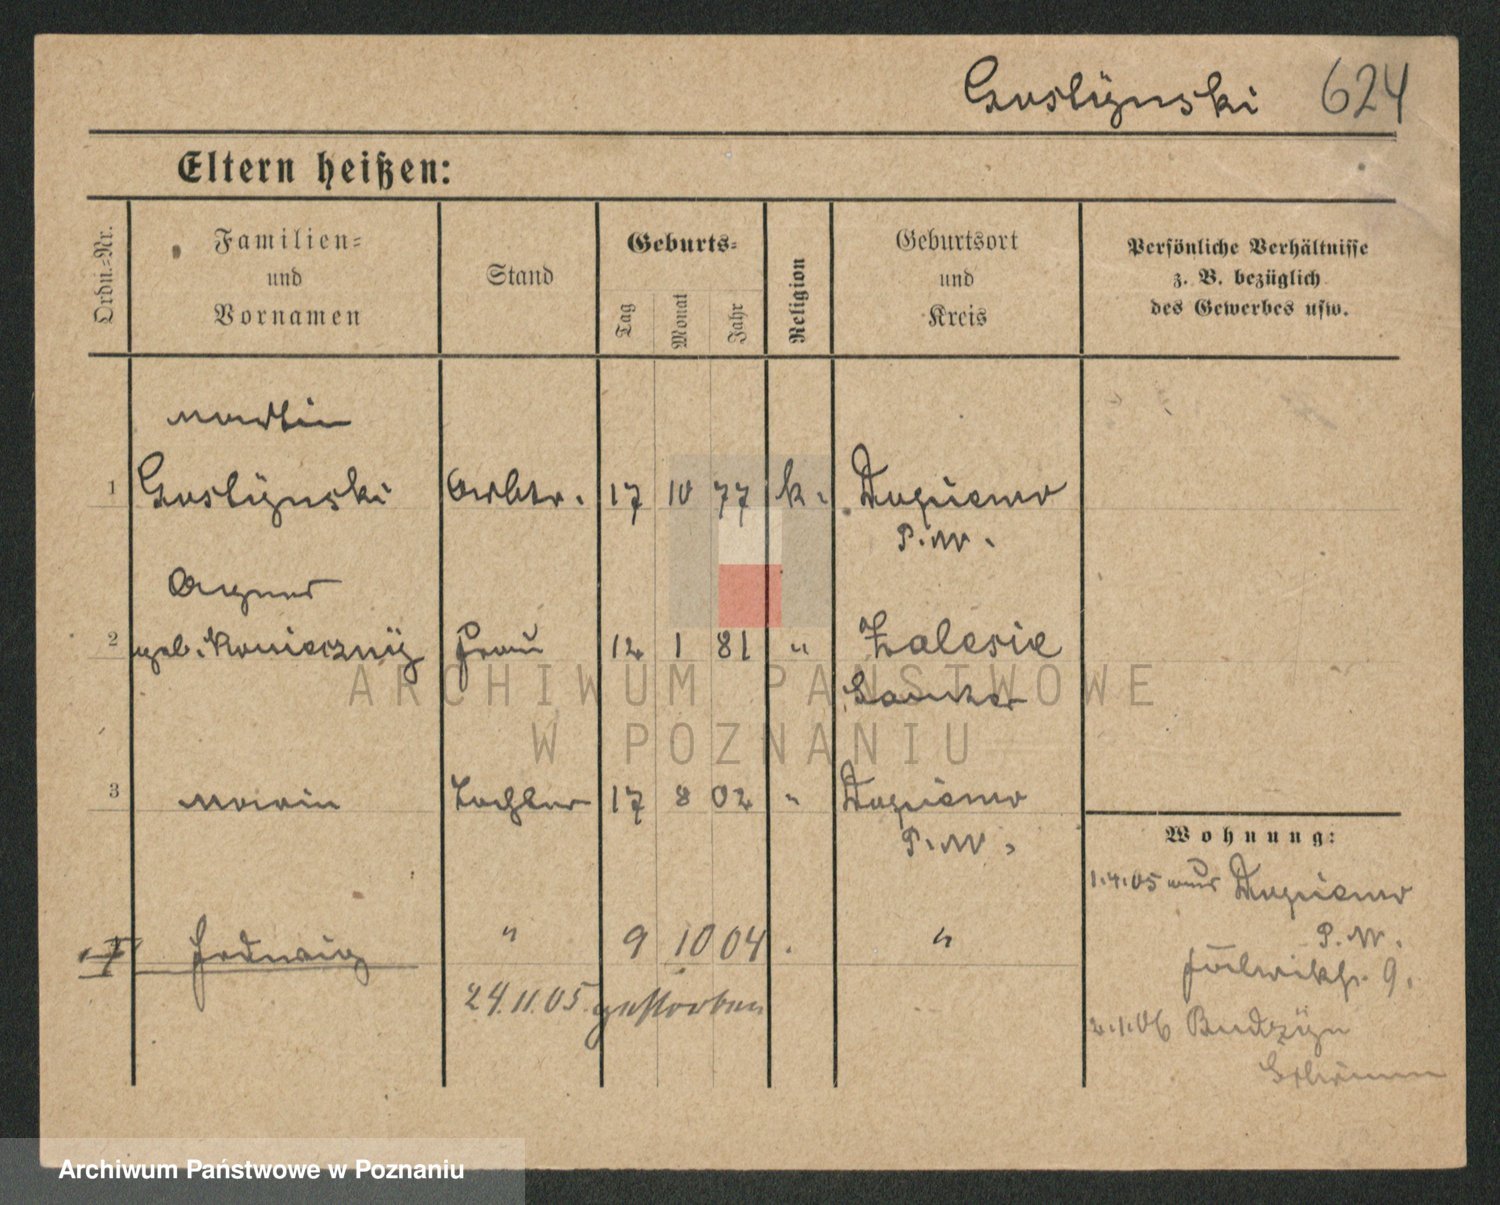 Goslizynski 624
Eltern heißen:
Ordn.-Nr.
Familien-
und
Vornamen
Stand
Geburts-
Tag
Monat
Jahr
Religion
Geburtsort
und
Kreis
Persönliche Verhältnisse
z. B. bezüglich
des Gewerbes usw.
Martin
1 Goslizynski Arbtr. 17 10 77 k. Dupiewo
P. W.
Agnes
2 geb. Koniecznÿ Frau 12 1 81 " Zalesie
Samter
ARCHIWUM PAŃSTWOWE
W POZNANIU
3 Maria Tochter 17 8 02 " Dupiewo
P. W.
Wohnung:
1.4.05 aus Dupiewo
P. W.
4 Hedwig " 9 10 04 "
9.
24.11.05 gestorben
2.1.06 Budzÿn
Archiwum Państwowe w Poznaniu